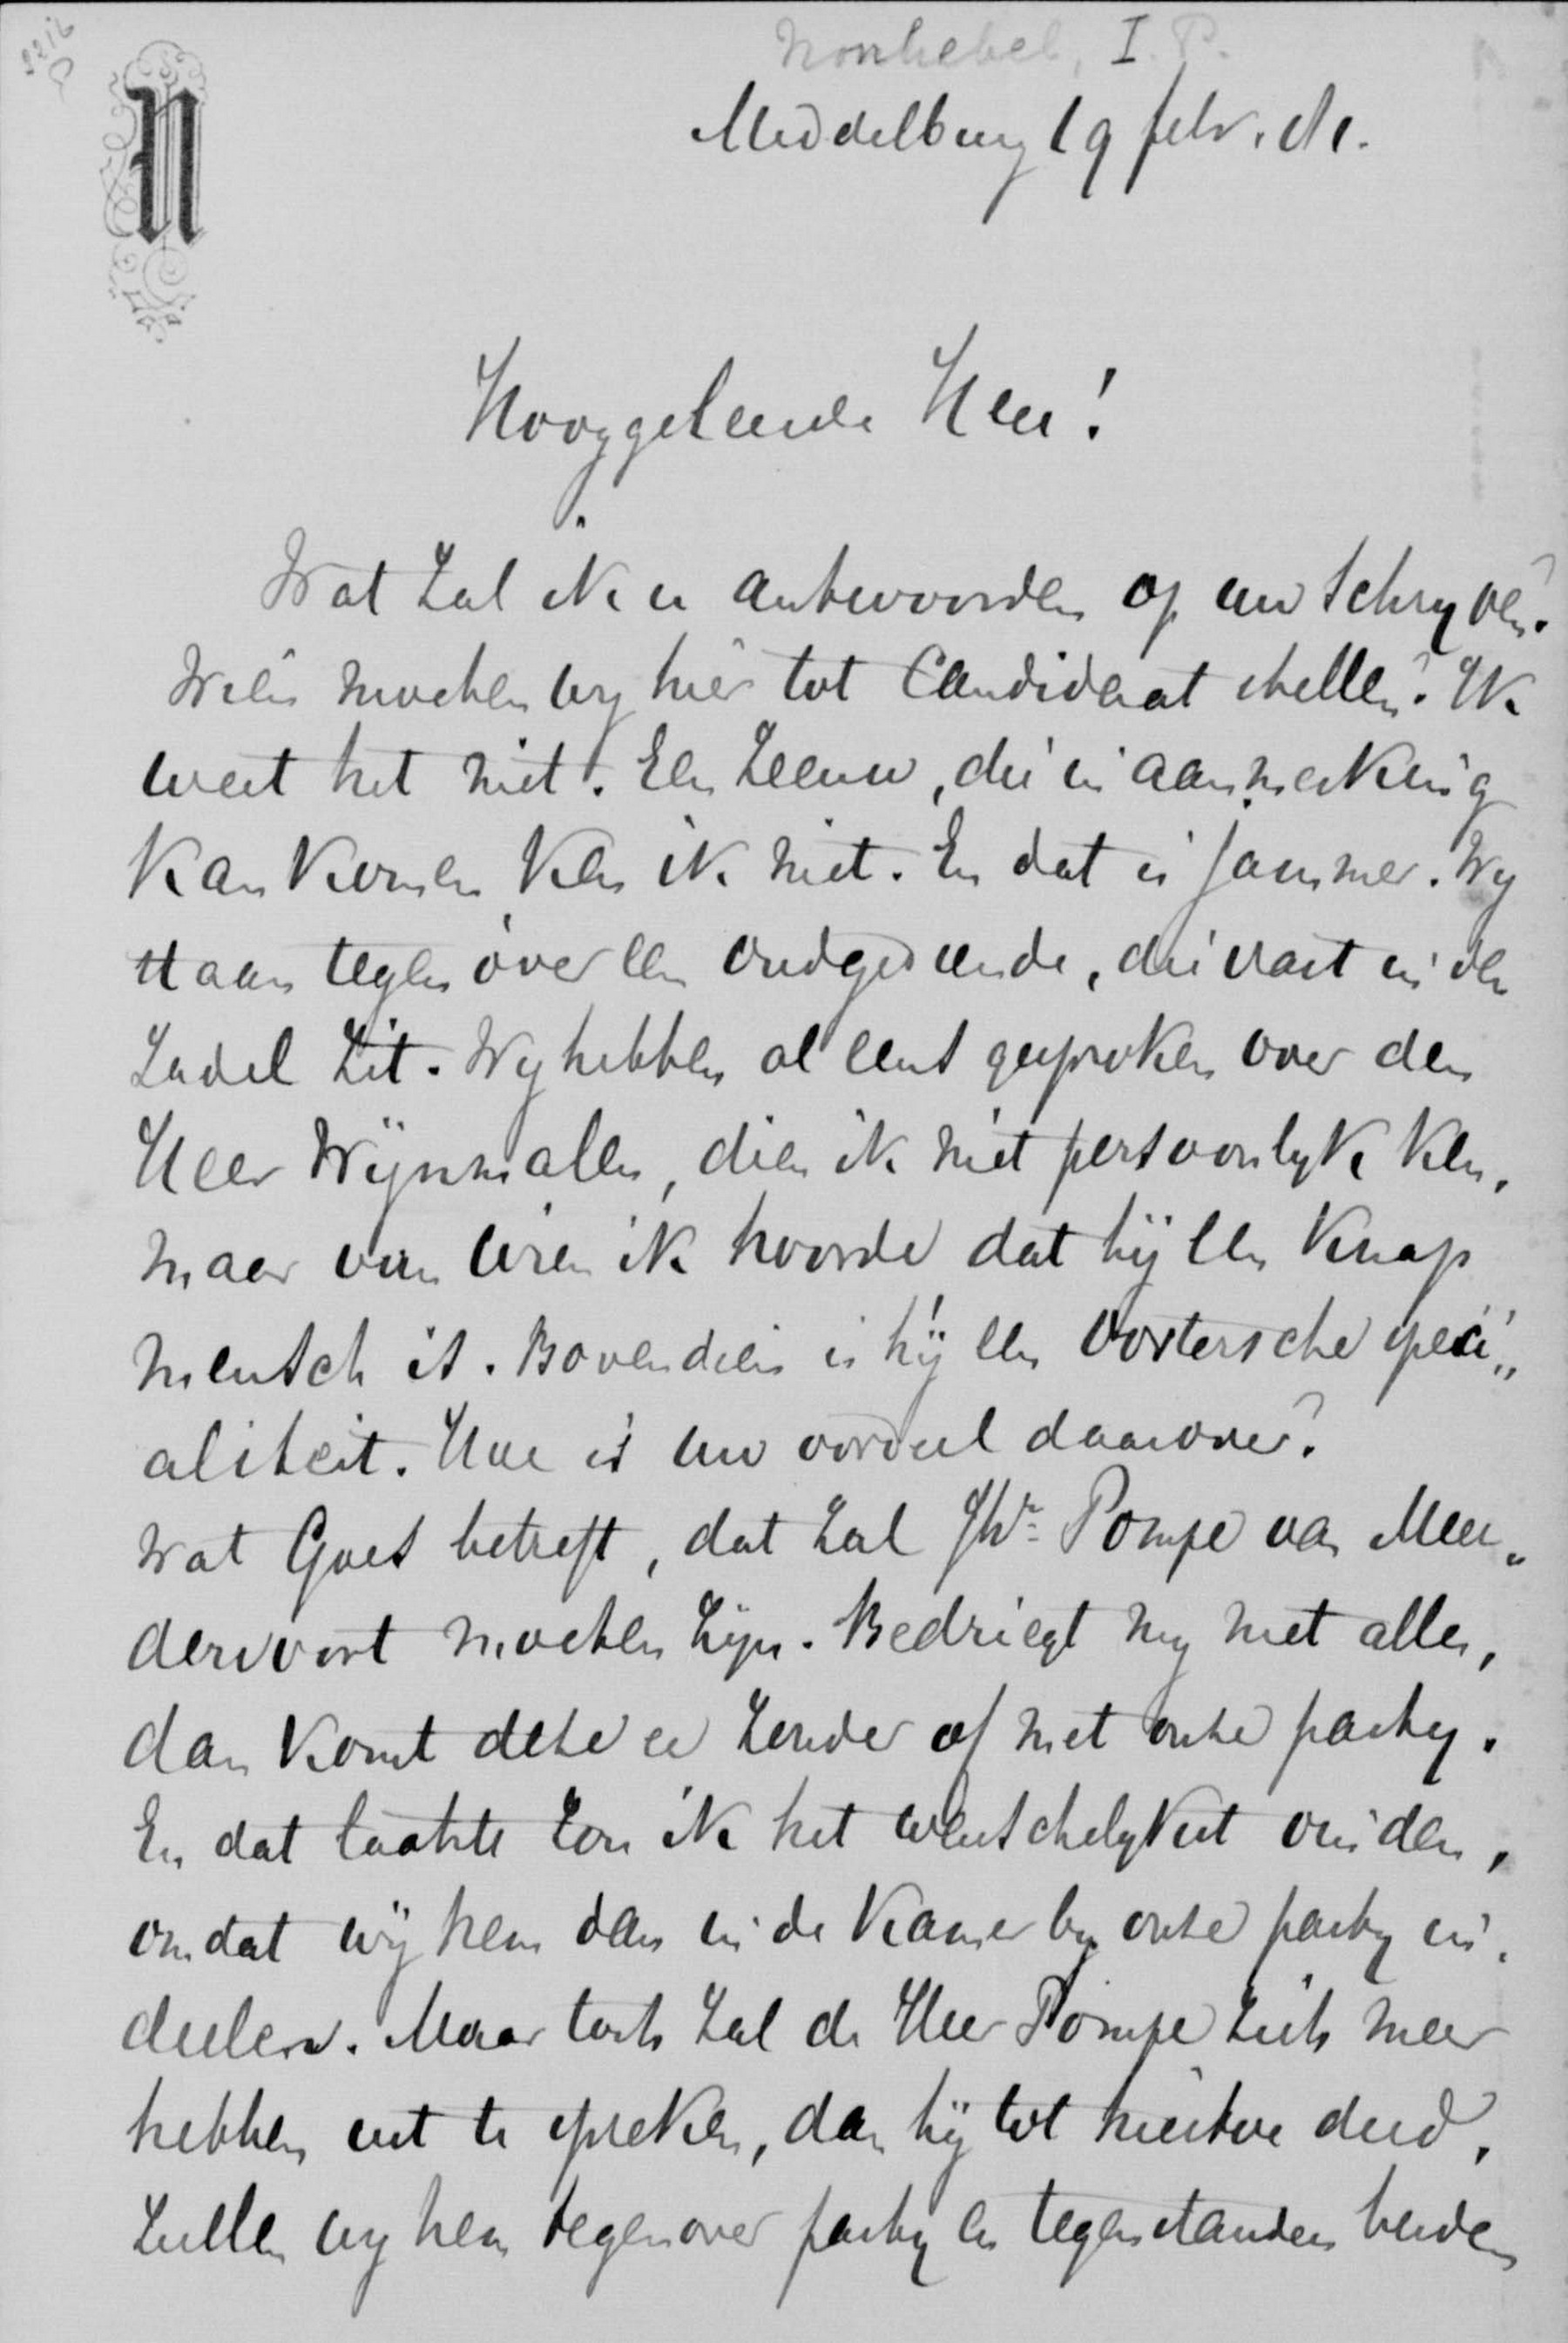 Nonhebel, I. P.
N
Middelburg 19 febr. 81.
Hooggeleerde Heer!
Wat zal ik u antwoorden op uw schryven?
Wien moeten wy hier tot Candidaat stellen? Ik
weet het niet. Een Zeeuw, die in aanmerking
kan komen ken ik niet. En dat is jammer. Wy
staan tegenover een oudgediende, die vast in den
Zadel zit. Wy hebben al eens gesproken over den
Heer Wijnmalen, dien ik niet persoonlyk ken,
maar van wien ik hoorde dat hij een knap
mensch is. Bovendien is hij een Oostersche speci„
aliteit. Hoe is uw oordeel daarover?
Wat Goes betreft, dat zal Jhr. Pompe van Meer„
dervoort moeten zijn. Bedriegt my niet alles,
dan komt deze er zonder of met onze party.
En dat laatste zou ik het wenschelykst vinden,
omdat wij hem dan in de Kamer by onze party in„
deelen. Maar toch zal de Heer Pompe zich meer
hebben uit te spreken, dan hij tot hiertoe deed,
zullen wy hem tegenover party en tegenstanders beiden